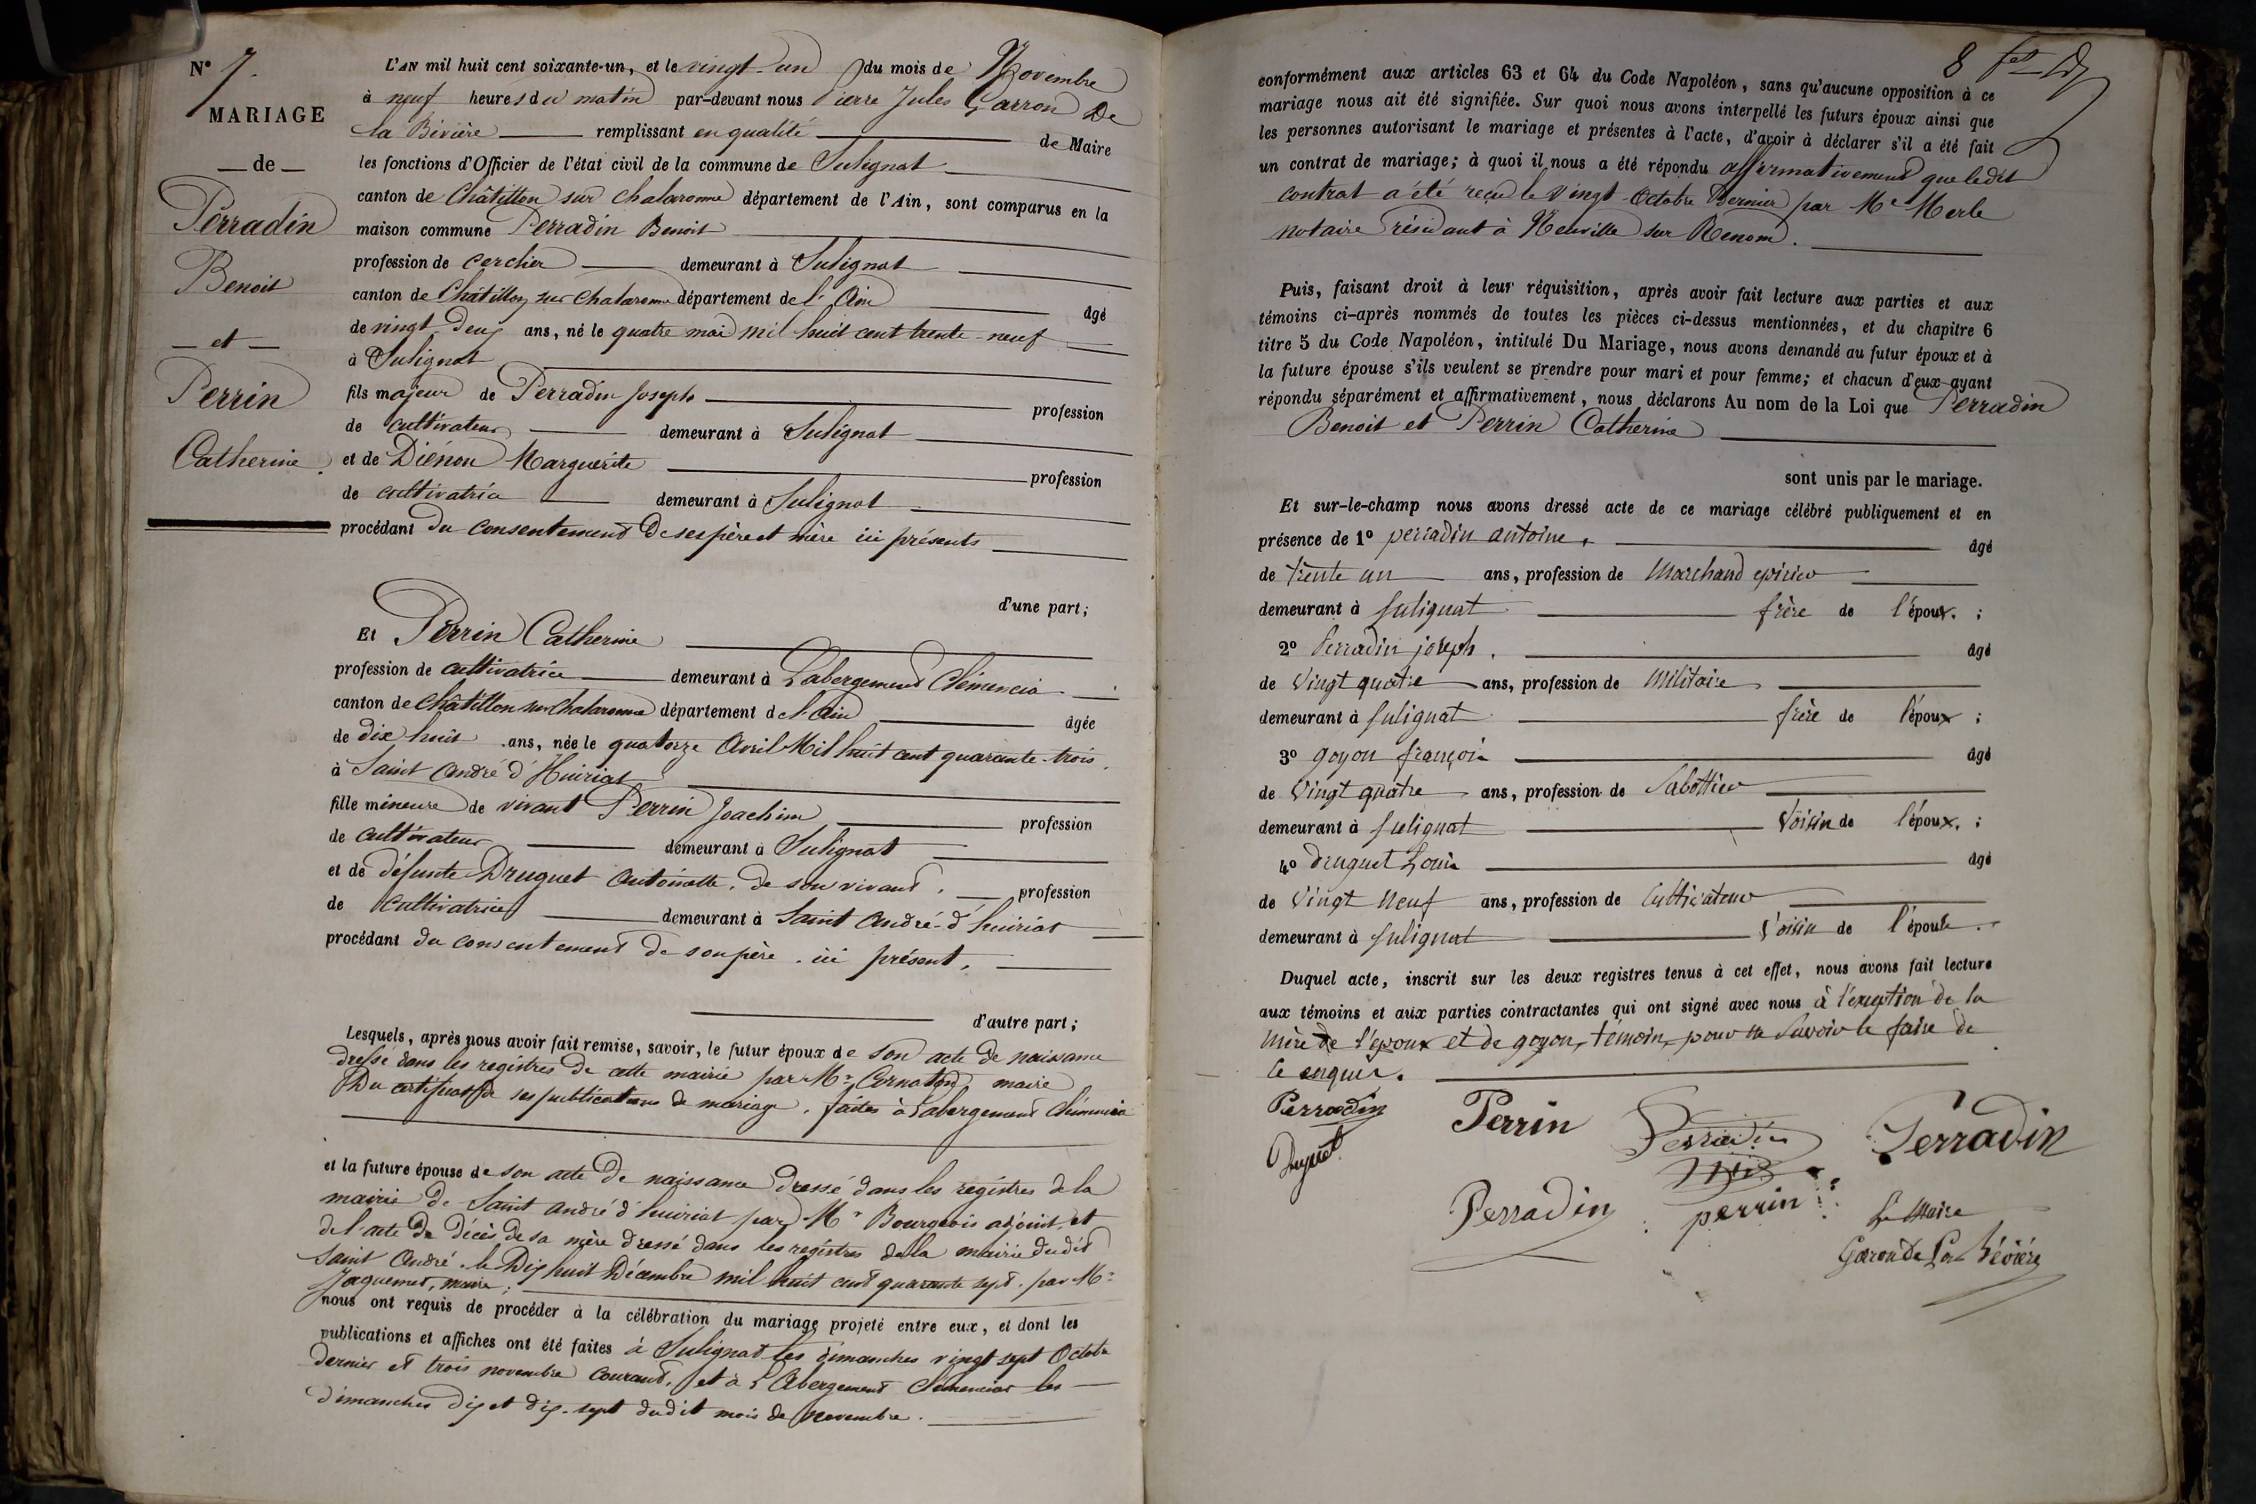 N° 7.
MARIAGE
de
Perradin
Benoit
et
Perrin
Catherine.
L'AN mil huit cent soixante-un, et le vingt-un du mois de Novembre
à neuf heures du matin par-devant nous Pierre Jules Garron De
la Bévière remplissant en qualité de Maire
les fonctions d'Officier de l'état civil de la commune de Sulignat
canton de Châtillon sur Chalaronne département de l'Ain, sont comparus en la
maison commune Perradin Benoit
profession de cerclier demeurant à Sulignat
canton de Châtillon sur Chalaronne département de l'Ain âgé
de vingt deux ans, né le quatre mai mil huit cent trente-neuf
à Sulignat
fils majeur de Perradin Joseph profession
de cultivateur demeurant à Sulignat
et de Diénon Marguerite profession
de cultivatrice demeurant à Sulignat
procédant du consentement de ses père et mère ici présents
d'une part;
Et Perrin Catherine
profession de cultivatrice demeurant à Labergement Clémencia
canton de Châtillon sur Chalaronne département de l'Ain âgée
de dix huit ans, née le quatorze Avril Mil huit cent quarante-trois.
à Saint André d'Huiriat
fille mineure de vivant Perrin Joachim profession
de cultivateur demeurant à Sulignat
et de défunte Druguet Antoinette, de son vivant, profession
de cultivatrice demeurant à Saint André-d'huiriat
procédant du consentement de son père, ici présent,
d'autre part;
Lesquels, après nous avoir fait remise, savoir, le futur époux de son acte de naissance
dressé dans les registres de cette mairie par Mr maire
Du certificat de ses publications de mariage, faites à Labergement Clémencia
et la future épouse de son acte de naissance dressé dans les registres de la
mairie de Saint André d'huiriat par Mr Bourgeois adjoint, et
de l'acte de décès de sa mère dressé dans les registres de la mairie dudit
Saint André le Dix huit Décembre mil huit cent quarante sept, par Mr
Jaquemet, maire;
nous ont requis de procéder à la célébration du mariage projeté entre eux, et dont les
publications et affiches ont été faites à Sulignat les dimanches vingt sept Octobre
dernier et trois novembre courant, et à L'Abergement Clémencia les
dimanches dix et dix-sept dudit mois de novembre.
8
conformément aux articles 63 et 64 du Code Napoléon, sans qu'aucune opposition à ce
mariage nous ait été signifiée. Sur quoi nous avons interpellé les futurs époux ainsi que
les personnes autorisant le mariage et présentes à l'acte, d'avoir à déclarer s'il a été fait
un contrat de mariage; à quoi il nous a été répondu affirmativement que ledit
contrat a été reçu le vingt Octobre Dernier par Me Merle
notaire résidant à Neuville sur Renom.
Puis, faisant droit à leur réquisition, après avoir fait lecture aux parties et aux
témoins ci-après nommés de toutes les pièces ci-dessus mentionnées, et du chapitre 6
titre 5 du Code Napoléon, intitulé Du Mariage, nous avons demandé au futur époux et à
la future épouse s'ils veulent se prendre pour mari et pour femme; et chacun d'eux ayant
répondu séparément et affirmativement, nous déclarons Au nom de la Loi que Perradin
Benoit et Perrin Catherine
sont unis par le mariage.
Et sur-le-champ nous avons dressé acte de ce mariage célébré publiquement et en
présence de 1° perradin antoine, âgé
de trente un ans, profession de Marchand epicier
demeurant à Sulignat frère de l'époux. ;
2° Perradin joseph. âgé
de vingt quatre ans, profession de Militaire
demeurant à Sulignat frère de l'époux ;
3° goyon françois âgé
de vingt quatre ans, profession de Sabottier
demeurant à Sulignat voisin de l'époux. ;
4° druguet Louis âgé
de vingt neuf ans, profession de Cultivateur
demeurant à Sulignat voisin de l'épouse.
Duquel acte, inscrit sur les deux registres tenus à cet effet, nous avons fait lecture
aux témoins et aux parties contractantes qui ont signé avec nous à l'exception de la
mère de l'époux et de goyon, témoin, pour ne savoir le faire de
ce enquis.
Perradin Perrin Perradin Perradin
Druguet
Perradin perrin Le Maire
Garron De La Bévière